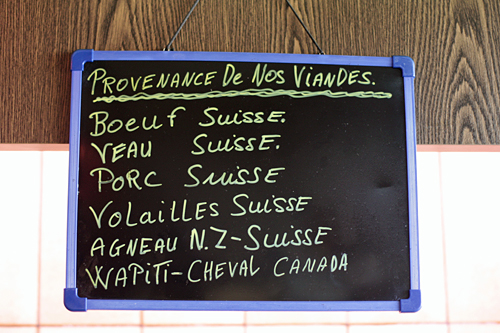 PROVENANCE De NoS ViANDES.
Boeuf SuisSE.
VEAU SuisSE.
PoRC SuiSSE
VoLAiLLES SuiSSE
AGNEAU N.Z-SuiSSE
WAPiTi-CHEVAL CANADA